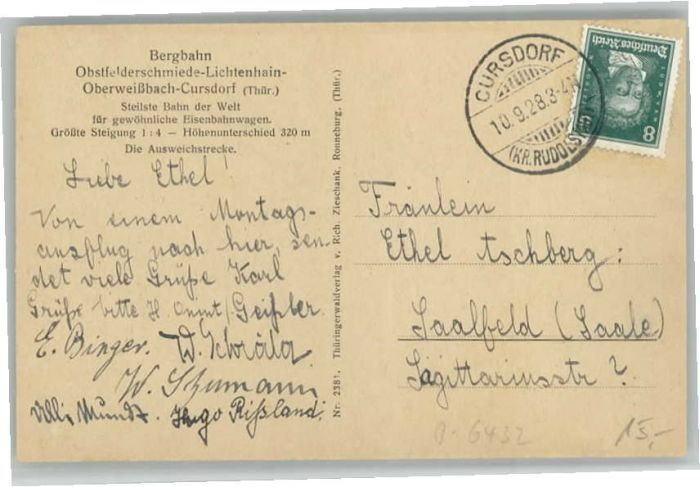 Bergbahn
Obstfelderschmiede-Lichtenhain-
Oberweißbach-Cursdorf (Thür.)
Steilste Bahn der Welt
für gewöhnliche Eisenbahnwagen.
Größte Steigung 1:4 — Höhenunterschied 320 m
Die Ausweichstrecke.
Liebe Ethel!
Von einem Montags-
ausflug nach hier, sen-
det viele Grüße Karl
Grüße bitte H. Geißler.
E. Binger. W.
W. Schumann
Willi Mundt. Hugo Rißland.
Nr. 2381. Thüringerwaldverlag v. Rich. Zieschank, Ronneburg, (Thür.)
CURSDORF
10.9.28.3-4N
(KR.RUDOLST
Deutsches Reich
8
Fräulein
Ethel Aschberg:
Saalfeld (Saale)
Sagittariusstr ?
a-6432
15,-